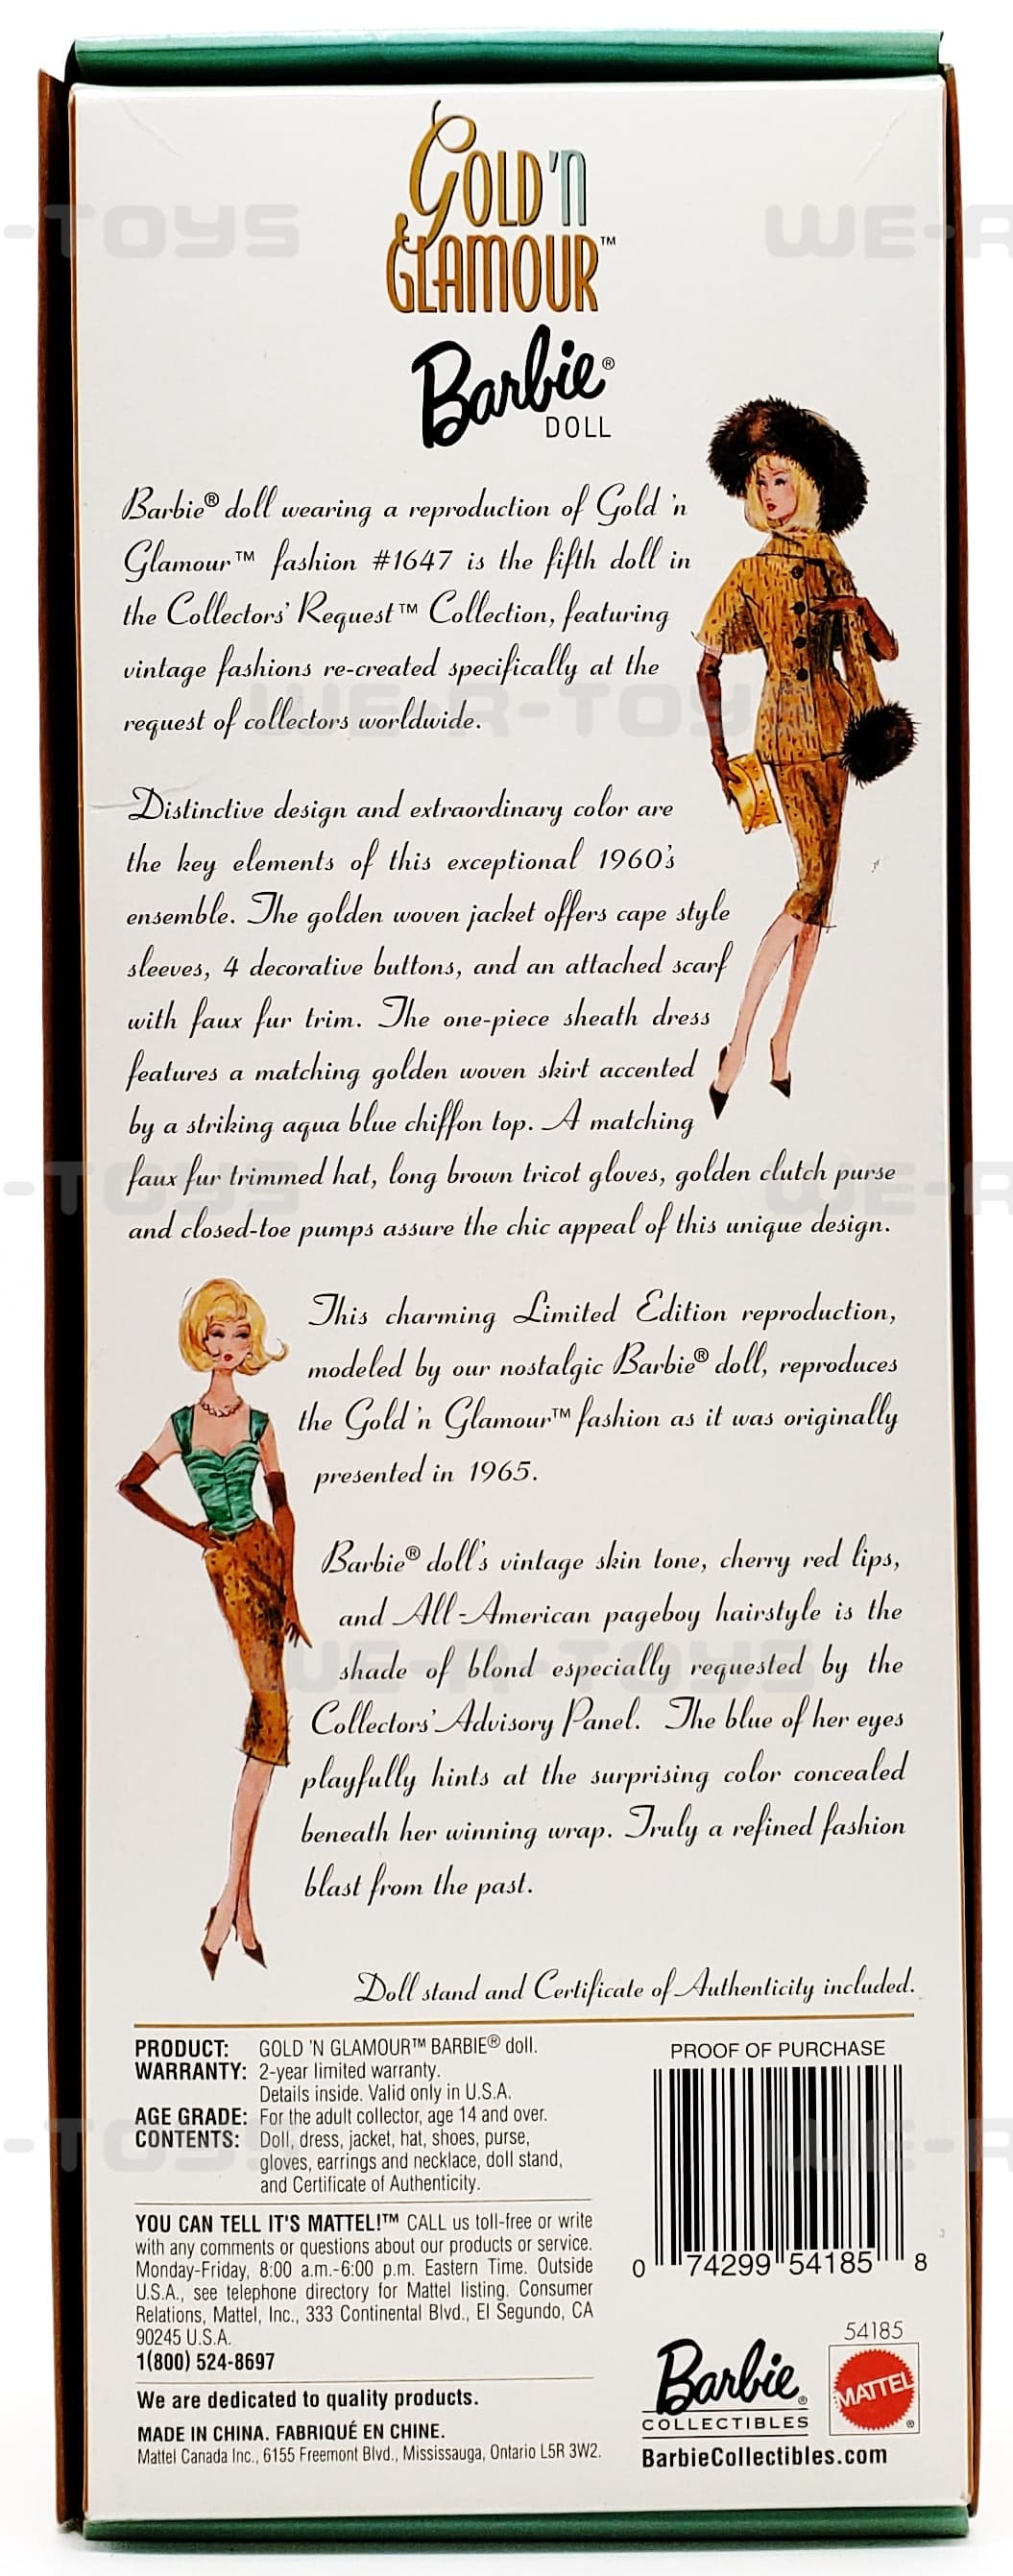 Gold 'n
Glamour™
Barbie®
DOLL
Barbie® doll wearing a reproduction of Gold 'n
Glamour™ fashion #1647 is the fifth doll in
the Collectors' Request™ Collection, featuring
vintage fashions re-created specifically at the
request of collectors worldwide.
Distinctive design and extraordinary color are
the key elements of this exceptional 1960's
ensemble. The golden woven jacket offers cape style
sleeves, 4 decorative buttons, and an attached scarf
with faux fur trim. The one-piece sheath dress
features a matching golden woven skirt accented
by a striking aqua blue chiffon top. A matching
faux fur trimmed hat, long brown tricot gloves, golden clutch purse
and closed-toe pumps assure the chic appeal of this unique design.
This charming Limited Edition reproduction,
modeled by our nostalgic Barbie® doll, reproduces
the Gold 'n Glamour™ fashion as it was originally
presented in 1965.
Barbie® doll's vintage skin tone, cherry red lips,
and All-American pageboy hairstyle is the
shade of blond especially requested by the
Collectors' Advisory Panel. The blue of her eyes
playfully hints at the surprising color concealed
beneath her winning wrap. Truly a refined fashion
blast from the past.
Doll stand and Certificate of Authenticity included.
PRODUCT: GOLD 'N GLAMOUR™ BARBIE® doll.
WARRANTY: 2-year limited warranty.
Details inside. Valid only in U.S.A.
AGE GRADE: For the adult collector, age 14 and over.
CONTENTS: Doll, dress, jacket, hat, shoes, purse,
gloves, earrings and necklace, doll stand,
and Certificate of Authenticity.
YOU CAN TELL IT'S MATTEL!™ CALL us toll-free or write
with any comments or questions about our products or service.
Monday-Friday, 8:00 a.m.-6:00 p.m. Eastern Time. Outside
U.S.A., see telephone directory for Mattel listing. Consumer
Relations, Mattel, Inc., 333 Continental Blvd., El Segundo, CA
90245 U.S.A.
1(800) 524-8697
We are dedicated to quality products.
MADE IN CHINA. FABRIQUÉ EN CHINE.
Mattel Canada Inc., 6155 Freemont Blvd., Mississauga, Ontario L5R 3W2.
PROOF OF PURCHASE
0 74299 54185 8
54185
Barbie®
COLLECTIBLES
MATTEL®
BarbieCollectibles.com
-TOYS WE-R
WE-R-TOYS
-TOYS WE-R
WE-R-TOYS
-TOYS WE-R